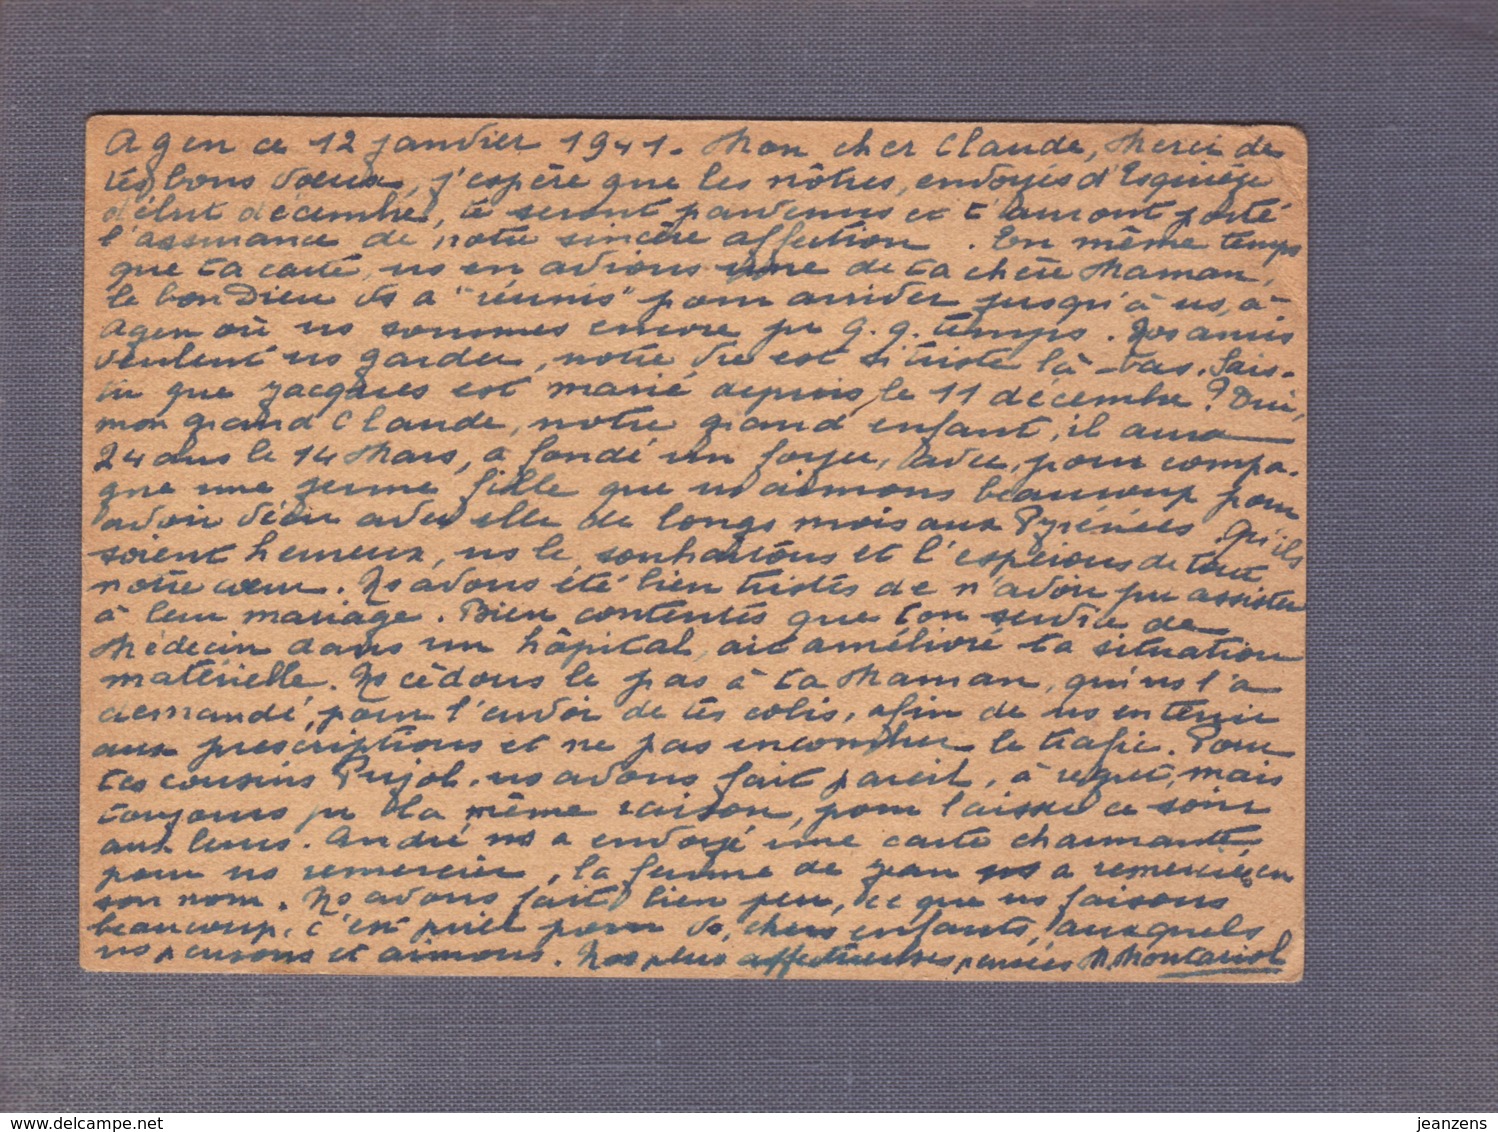 Agen ce 12 janvier 1941. Mon cher Claude, Merci de
tes bons voeux, j'espère que les nôtres, envoyés d'Esquièze
début décembre, te seront parvenus et t'auront porté
l'assurance de notre sincère affection. En même temps
que ta carte, ns en avions une de ta chère Maman,
le bon Dieu les a "réunis" pour arriver jusqu'à ns, à
Agen où ns sommes encore pr q.q. temps. Nos amis
veulent ns garder, notre vie est si triste là-bas. Sais-
tu que Jacques est marié depuis le 11 décembre? Oui,
mon grand Claude, notre grand enfant, il aura
24 ans le 14 Mars, a fondé un foyer, avec, pour compa-
gne une jeune fille que ns aimons beaucoup pour
avoir vécu avec elle de longs mois aux Pyrénées. Qu'ils
soient heureux, ns le souhaitons et l'espérons de tout
notre coeur. Ns avons été bien tristes de n'avoir pu assister
à leur mariage. Bien contents que ton service de
Médecin dans un hôpital, ait amélioré ta situation
matérielle. Ns cédons le pas à ta Maman, qui ns l'a
demandé, pour l'envoi de tes colis, afin de ns en tenir
aux prescriptions et ne pas encombrer le trafic. Pour
tes cousins Pujol, ns avons fait pareil, à regret, mais
toujours pr la même raison, pour laisser ce soin
aux leurs. André ns a envoyé une carte charmante
pour ns remercier, la femme de Jean ns a remercié en
son nom. Ns avons fait bien peu, ce que ns faisons
beaucoup, c'est prier pour vs, chers enfants, auxquels
ns pensons et aimons. Nos plus affectueuses pensées M. Montariol
jeanzens
delcampe.net